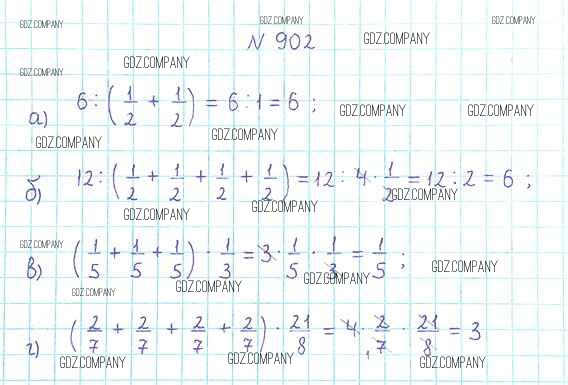 GDZ.COMPANY GDZ.COMPANY GDZ.COMPANY
N 902 GDZ.COMPANY
GDZ.COMPANY
GDZ.COMPANY
а) 6 : (1/2 + 1/2) = 6 : 1 = 6 ; GDZ.COMPANY GDZ.COMPANY
GDZ.COMPANY GDZ.COMPANY
б) 12 : (1/2 + 1/2 + 1/2 + 1/2) = 12 : 4 · 1/2 = 12 : 2 = 6 ;
GDZ.COMPANY
GDZ.COMPANY GDZ.COMPANY
в) (1/5 + 1/5 + 1/5) · 1/3 = 3 · 1/5 · 1/3 = 1/5 ;
GDZ.COMPANY GDZ.COMPANY
GDZ.COMPANY GDZ.COMPANY GDZ.COMPANY
г) (2/7 + 2/7 + 2/7 + 2/7) · 21/8 = 4 · 2/7 · 21/8 = 3
GDZ.COMPANY GDZ.COMPANY GDZ.COMPANY